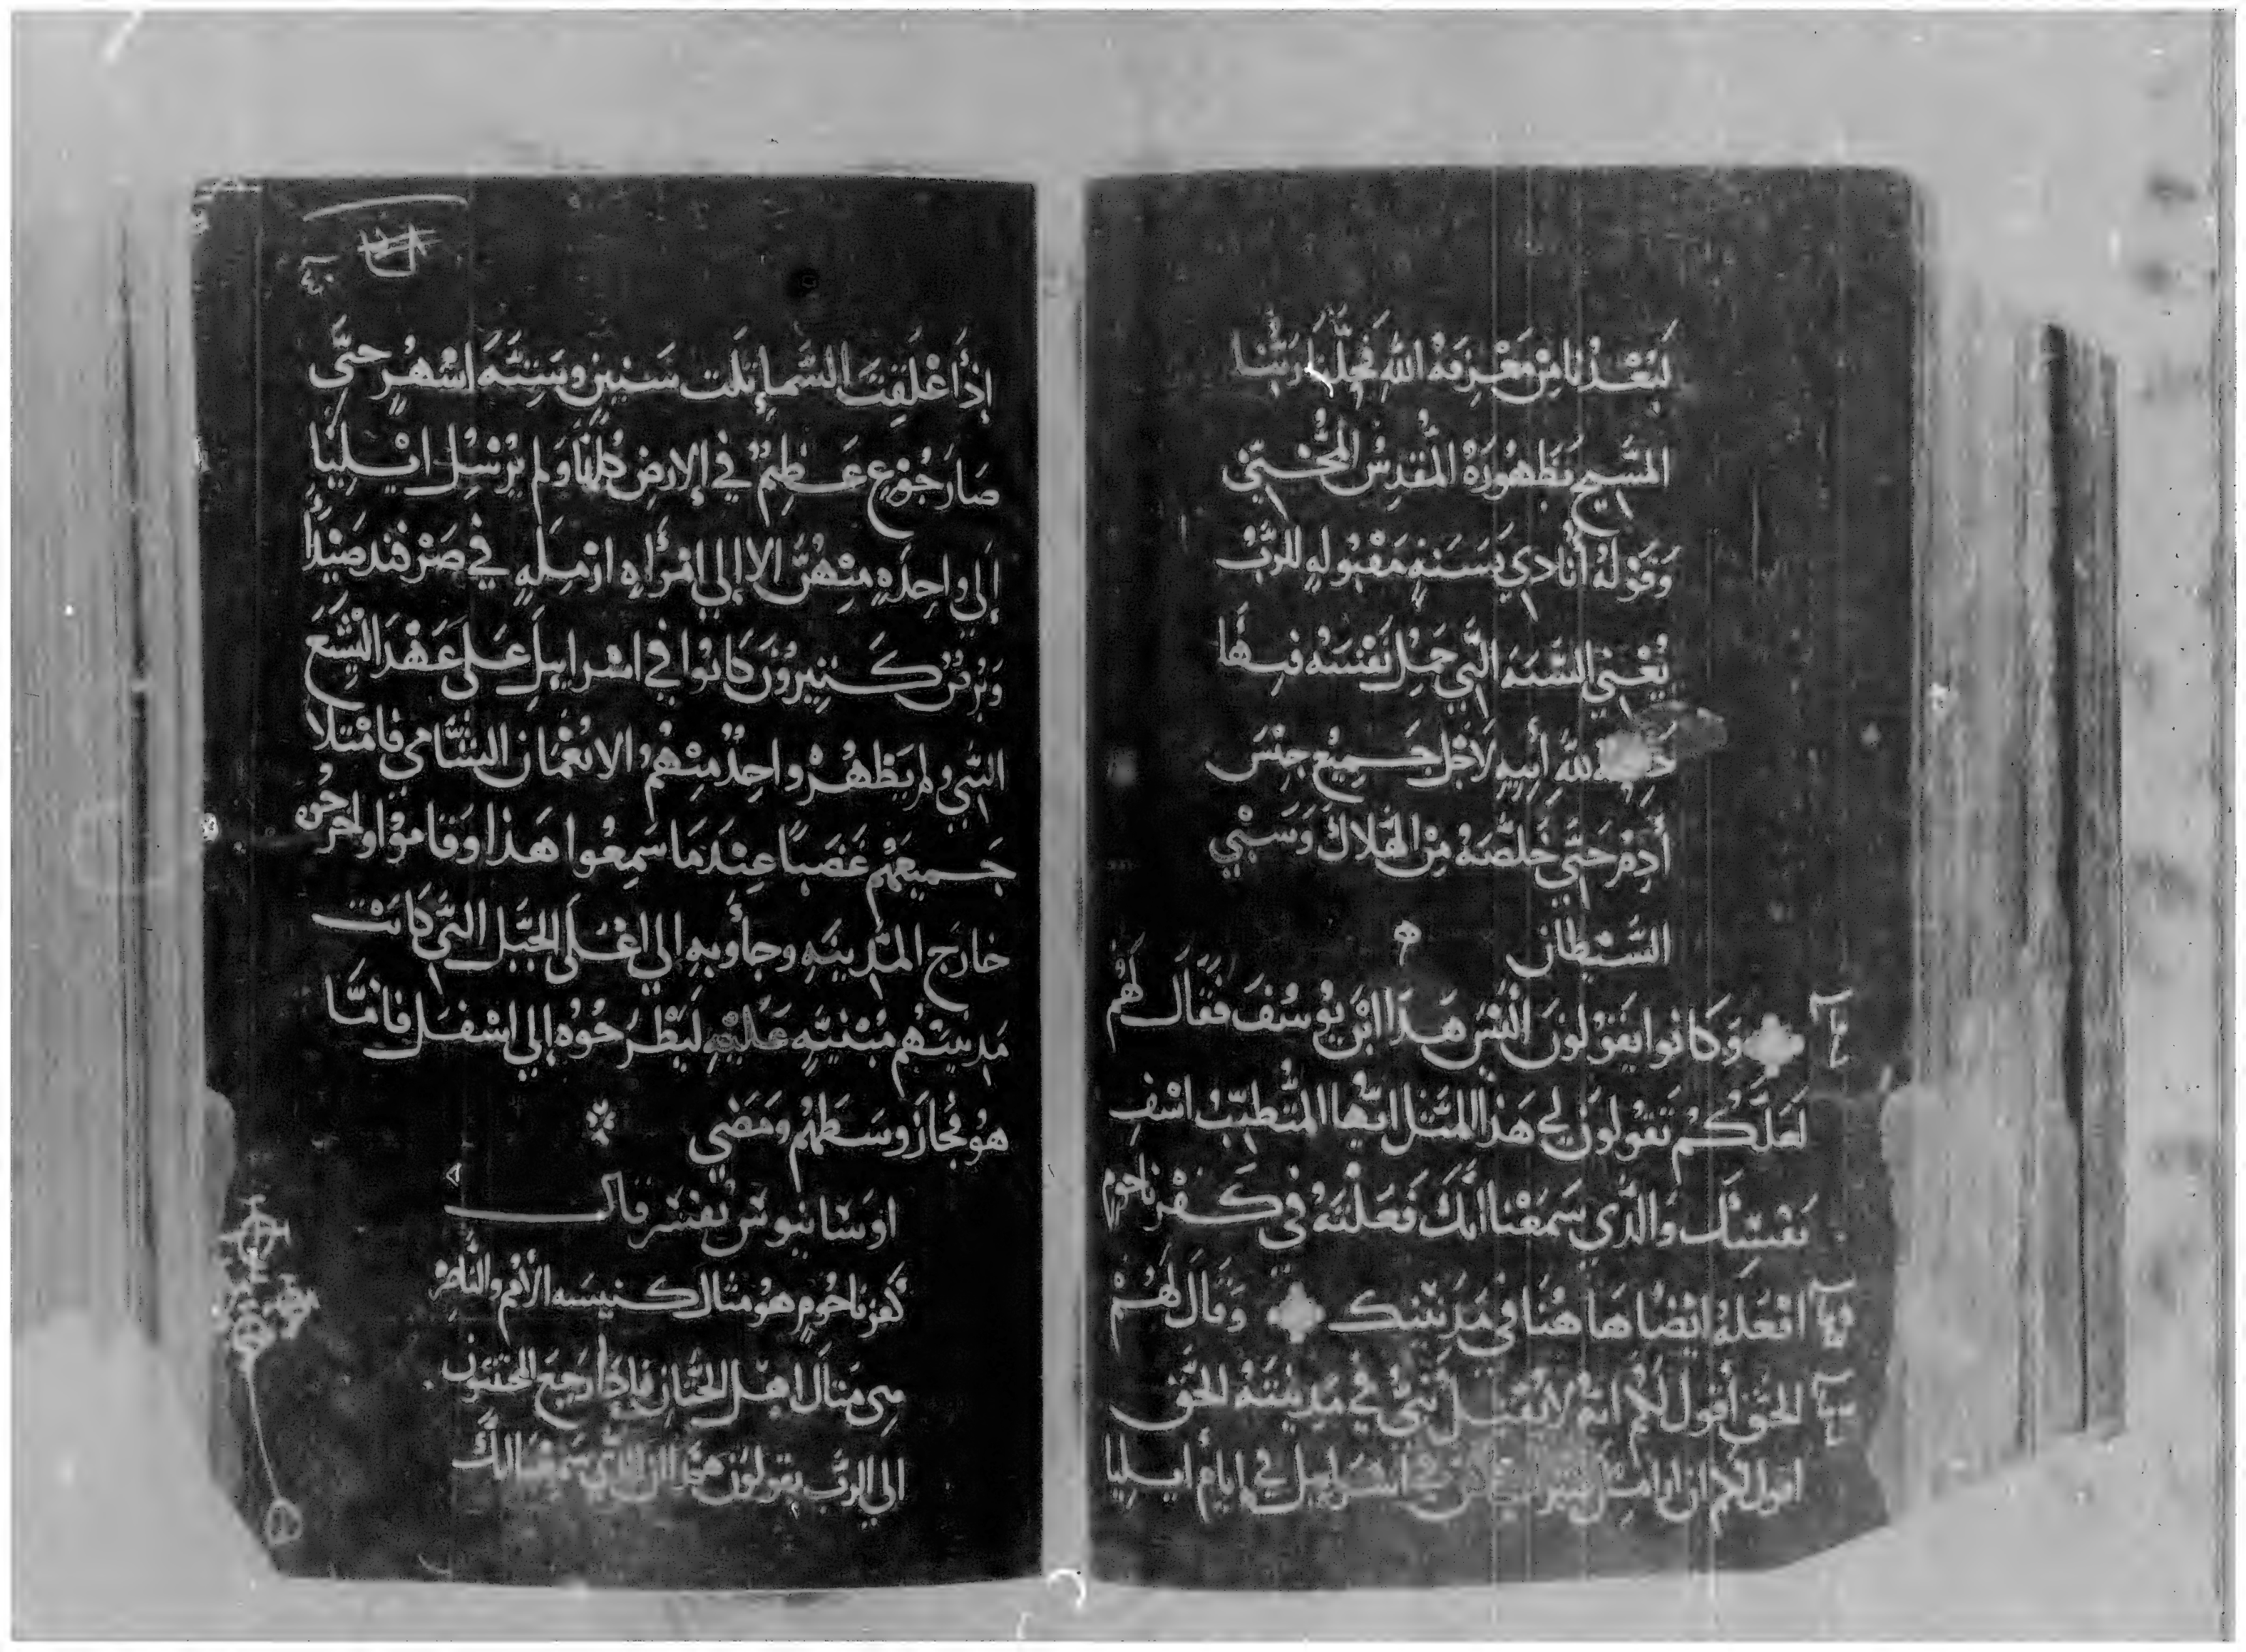 لبعدنا من معرفة الله فجلنا ربنا
المسيح بظهوره المقدس المحيي
وقوله أنادي بسنه مقبوله للرب
يعني السنه التي حمل نفسه فيها
لله أبيه لاجل جميع جنس
أدم حتي خلصه من الهلاك وسبي
الشيطان
وكانوا يقولون أليس هذا ابن يوسف فقال لهم
لعلكم تقولون لي هذا المثل ايها المتطبب اشف
نفسك والذي سمعنا انك فعلته في كفرناحوم
افعله ايضا هاهنا في مدينتك وقال لهم
الحق أقول لكم انه لا يقبل نبي في مدينته الحق
اقول لكم ان ارامل كثيرات كن في اسرايل في ايام ايليا
٤٠
إذ أغلقت السما ثلت سنين وسته اشهر حتى
صار جوع عظيم في الارض كلها ولم يرسل ايليا
إلي واحده منهن الا إلي امرأه ارمله في صرفند صيدا
وبرص كثيرون كانوا في اسرايل علي عهد اليشع
النبي ولم يطهر واحد منهم الا نعمان الشامي فامتلا
جميعهم غضبا عندما سمعوا هذا وقاموا واخرجوه
خارج المدينه وجأوبه الي اعلى الجبل التي كانت
مدينتهم مبنيه عليه ليطرحوه إلي اسفل فاما
هو فجاز وسطهم ومضي
اوسانيوس نفسر قال
كفرناحوم هو مثال كنيسه الأمم والناصره
هي مثال اهل الختان فاذا رجع المختون
الي الرب يقولون هذا ان الذي سمعنا انك